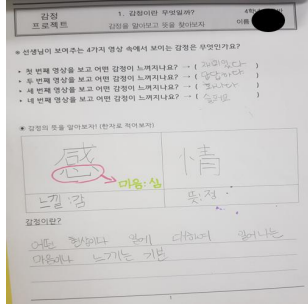 감정
프로젝트
1. 감정이란 무엇일까?
감정을 알아보고 뜻을 찾아보자
4학년
이름
선생님이 보여주는 4가지 영상 속에서 보이는 감정은 무엇인가요?
• 첫 번째 영상을 보고 어떤 감정이 느껴지나요? → ( )
• 두 번째 영상을 보고 어떤 감정이 느껴지나요? → ( )
• 세 번째 영상을 보고 어떤 감정이 느껴지나요? → ( )
• 네 번째 영상을 보고 어떤 감정이 느껴지나요? → ( )
감정의 뜻을 알아보자! (한자로 적어보자)
感 情
마음:심
느낄:감 뜻:정
감정이란?
어떤 현상이나 일에 대하여 일어나는
마음이나 느끼는 기분
1